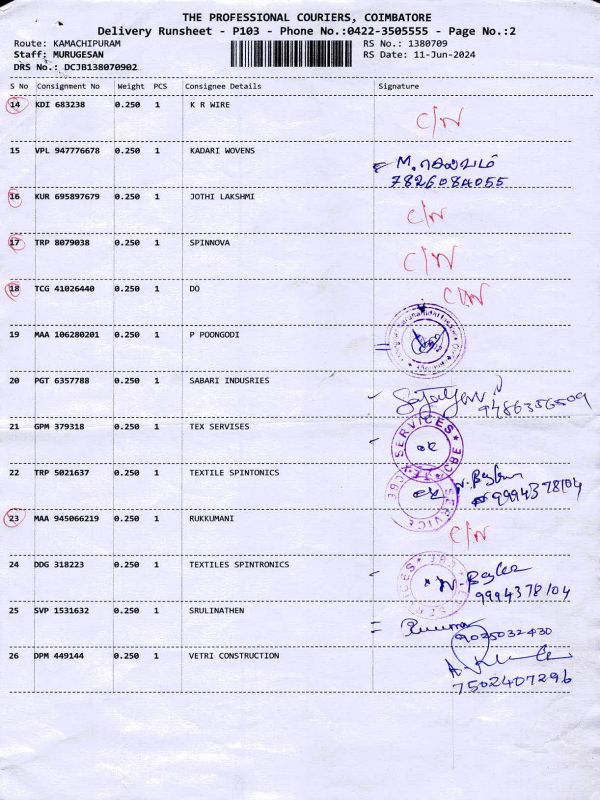 THE PROFESSIONAL COURIERS, COIMBATORE
Delivery Runsheet - P103 - Phone No.:0422-3505555 - Page No.:2
Route: KAMACHIPURAM RS No.: 1380709
Staff: MURUGESAN RS Date: 11-Jun-2024
DRS No.: DCJB138070902
S No Consignment No Weight PCS Consignee Details Signature
14 KDI 683238 0.250 1 K R WIRE C/N
15 VPL 947776678 0.250 1 KADARI WOVENS M.
7826084055
16 KUR 695897679 0.250 1 JOTHI LAKSHMI C/N
17 TRP 8079038 0.250 1 SPINNOVA C/N
18 TCG 41026440 0.250 1 DO C/N
19 MAA 106280201 0.250 1 P POONGODI
20 PGT 6357788 0.250 1 SABARI INDUSRIES
9486356509
21 GPM 379318 0.250 1 TEX SERVISES SERVICES CBE
22 TRP 5021637 0.250 1 TEXTILE SPINTONICS
9994378104
23 MAA 945066219 0.250 1 RUKKUMANI C/N
24 DDG 318223 0.250 1 TEXTILES SPINTRONICS
9994378104
25 SVP 1531632 0.250 1 SRULINATHEN
9025032430
26 DPM 449144 0.250 1 VETRI CONSTRUCTION
7502407296